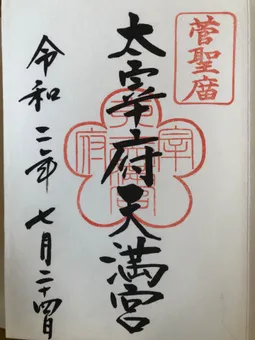 菅聖廟
太宰府天満宮
令和二年七月二十四日